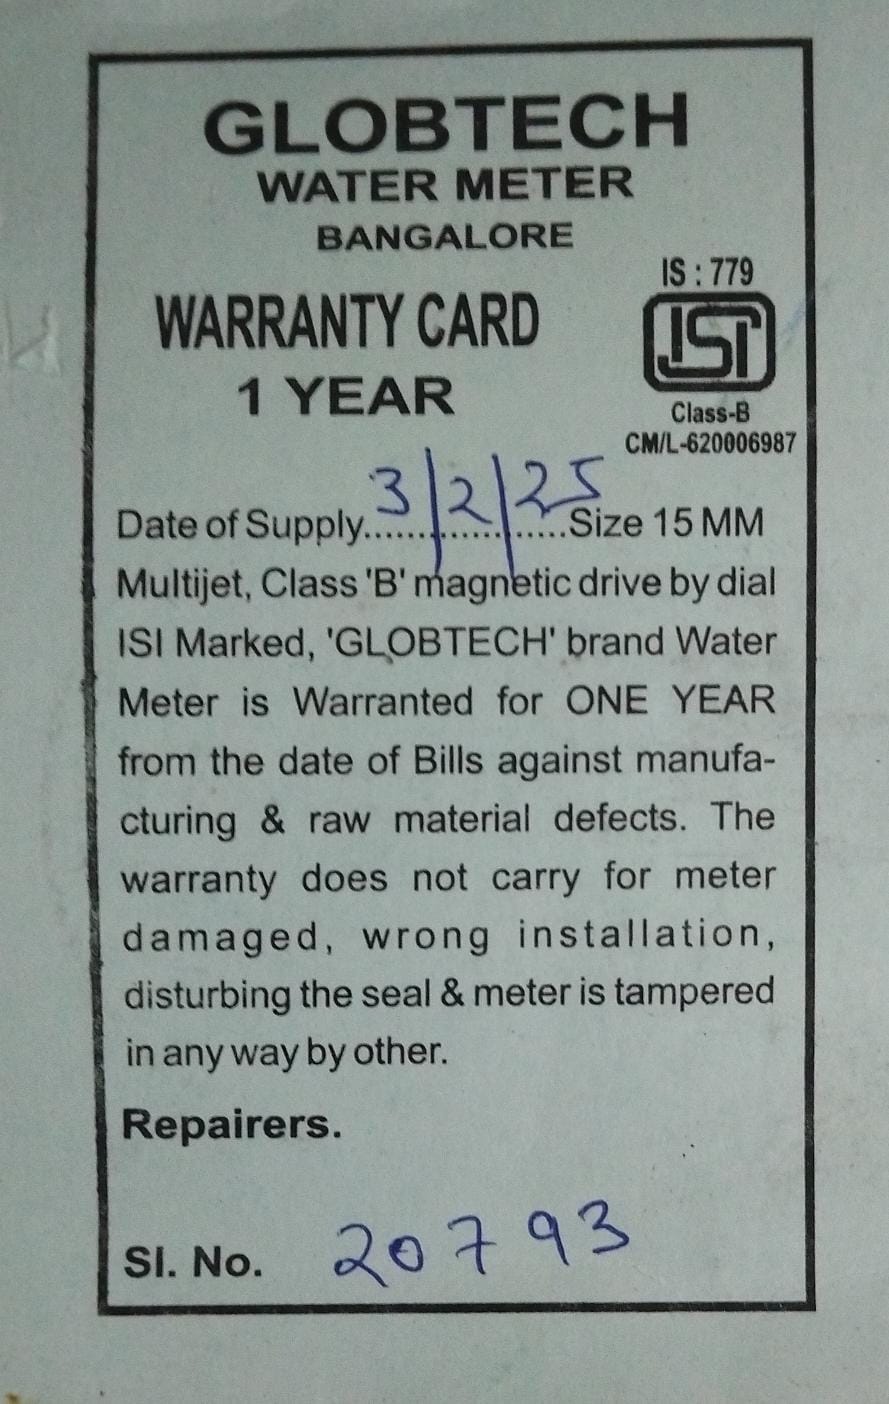 GLOBTECH
WATER METER
BANGALORE
IS : 779
WARRANTY CARD
ISI
1 YEAR
Class-B
CM/L-620006987
Date of Supply....3/2/25....Size 15 MM
Multijet, Class 'B' magnetic drive by dial
ISI Marked, 'GLOBTECH' brand Water
Meter is Warranted for ONE YEAR
from the date of Bills against manufa-
cturing & raw material defects. The
warranty does not carry for meter
damaged, wrong installation,
disturbing the seal & meter is tampered
in any way by other.
Repairers.
SI. No. 20793